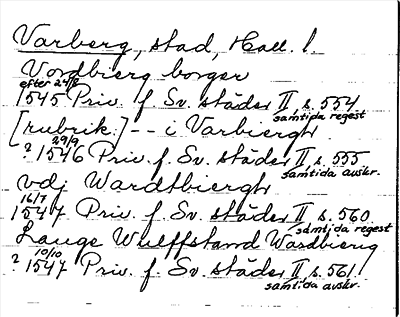 Varberg, stad, Hall. l.
Vordbierg borger
efter 24/8
1545 Priv. f. Sv. städer II, s. 554
samtida regest
[rubrik:] -- i Varbiergh
29/9
? 1546 Priv. f. Sv. städer II, s. 555
samtida avskr.
vdj Wardtbiergh
16/7
1547 Priv. f. Sv. städer II s. 560
samtida regest
Lauge Wulffstannd Wardbierig
10/10
? 1547 Priv. f. Sv. städer II s. 561
samtida avskr.